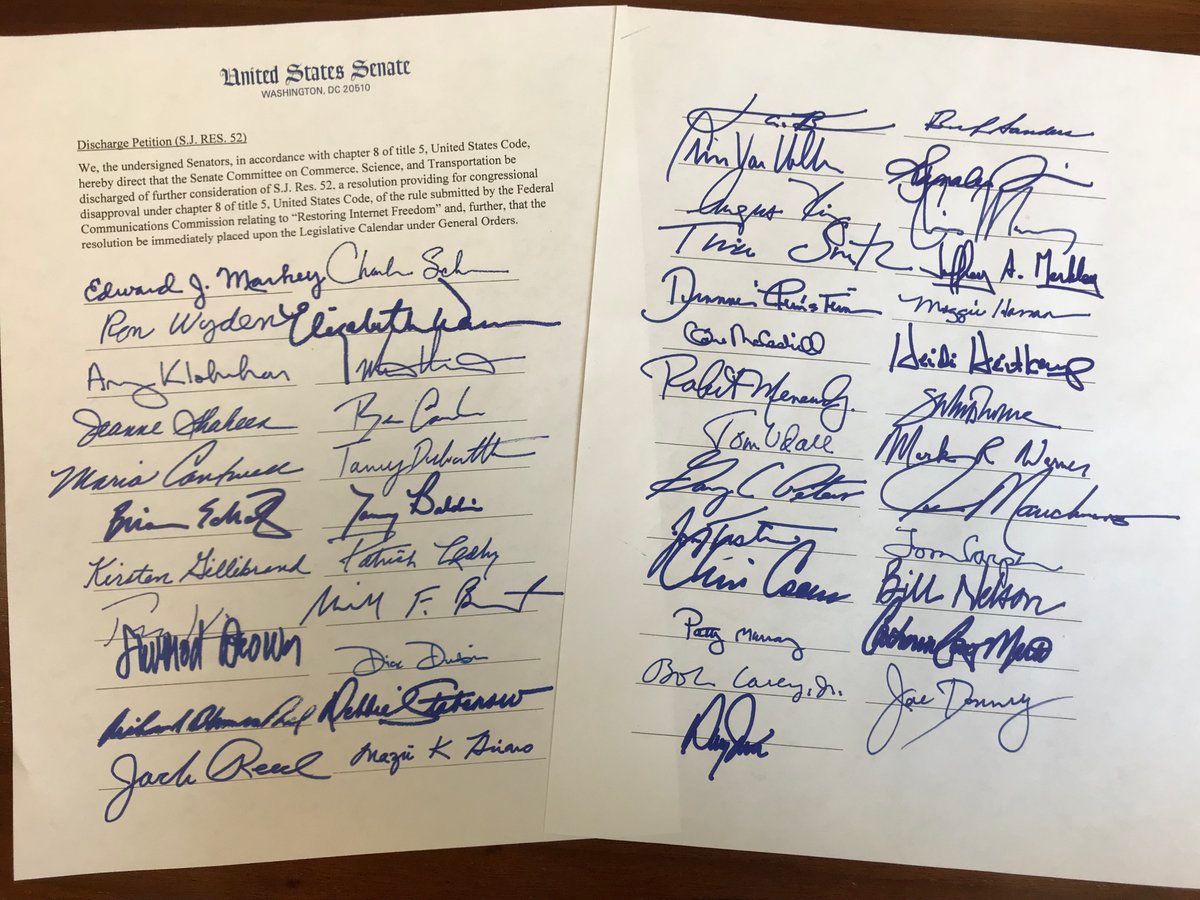 United States Senate
WASHINGTON, DC 20510
Discharge Petition (S.J. RES. 52)
We, the undersigned Senators, in accordance with chapter 8 of title 5, United States Code,
hereby direct that the Senate Committee on Commerce, Science, and Transportation be
discharged of further consideration of S.J. Res. 52, a resolution providing for congressional
disapproval under chapter 8 of title 5, United States Code, of the rule submitted by the Federal
Communications Commission relating to “Restoring Internet Freedom” and, further, that the
resolution be immediately placed upon the Legislative Calendar under General Orders.
Edward J. Markey
Ron Wyden Elizabeth
Amy Klobuchar
Jeanne Shaheen Ben
Maria Cantwell Tammy Duckworth
Brian Schatz Tammy Baldwin
Kirsten Gillibrand Patrick Leahy
F.
Sherrod Brown
Dick Durbin
Richard Blumenthal Debbie Stabenow
Jack Reed Mazie K Hirono
Sanders
Chris Van Hollen
Angus King Chris
Tina Smith Jeffrey A. Merkley
Dianne Feinstein Maggie Hassan
Claire McCaskill Heidi Heitkamp
Robert Menendez
Tom Udall Mark R Warner
Gary C Peters Joe Manchin
Tom Carper
Chris Coons Bill Nelson
Patty Murray Catherine Cortez Masto
Bob Casey, Jr. Joe Donnelly
Doug Jones